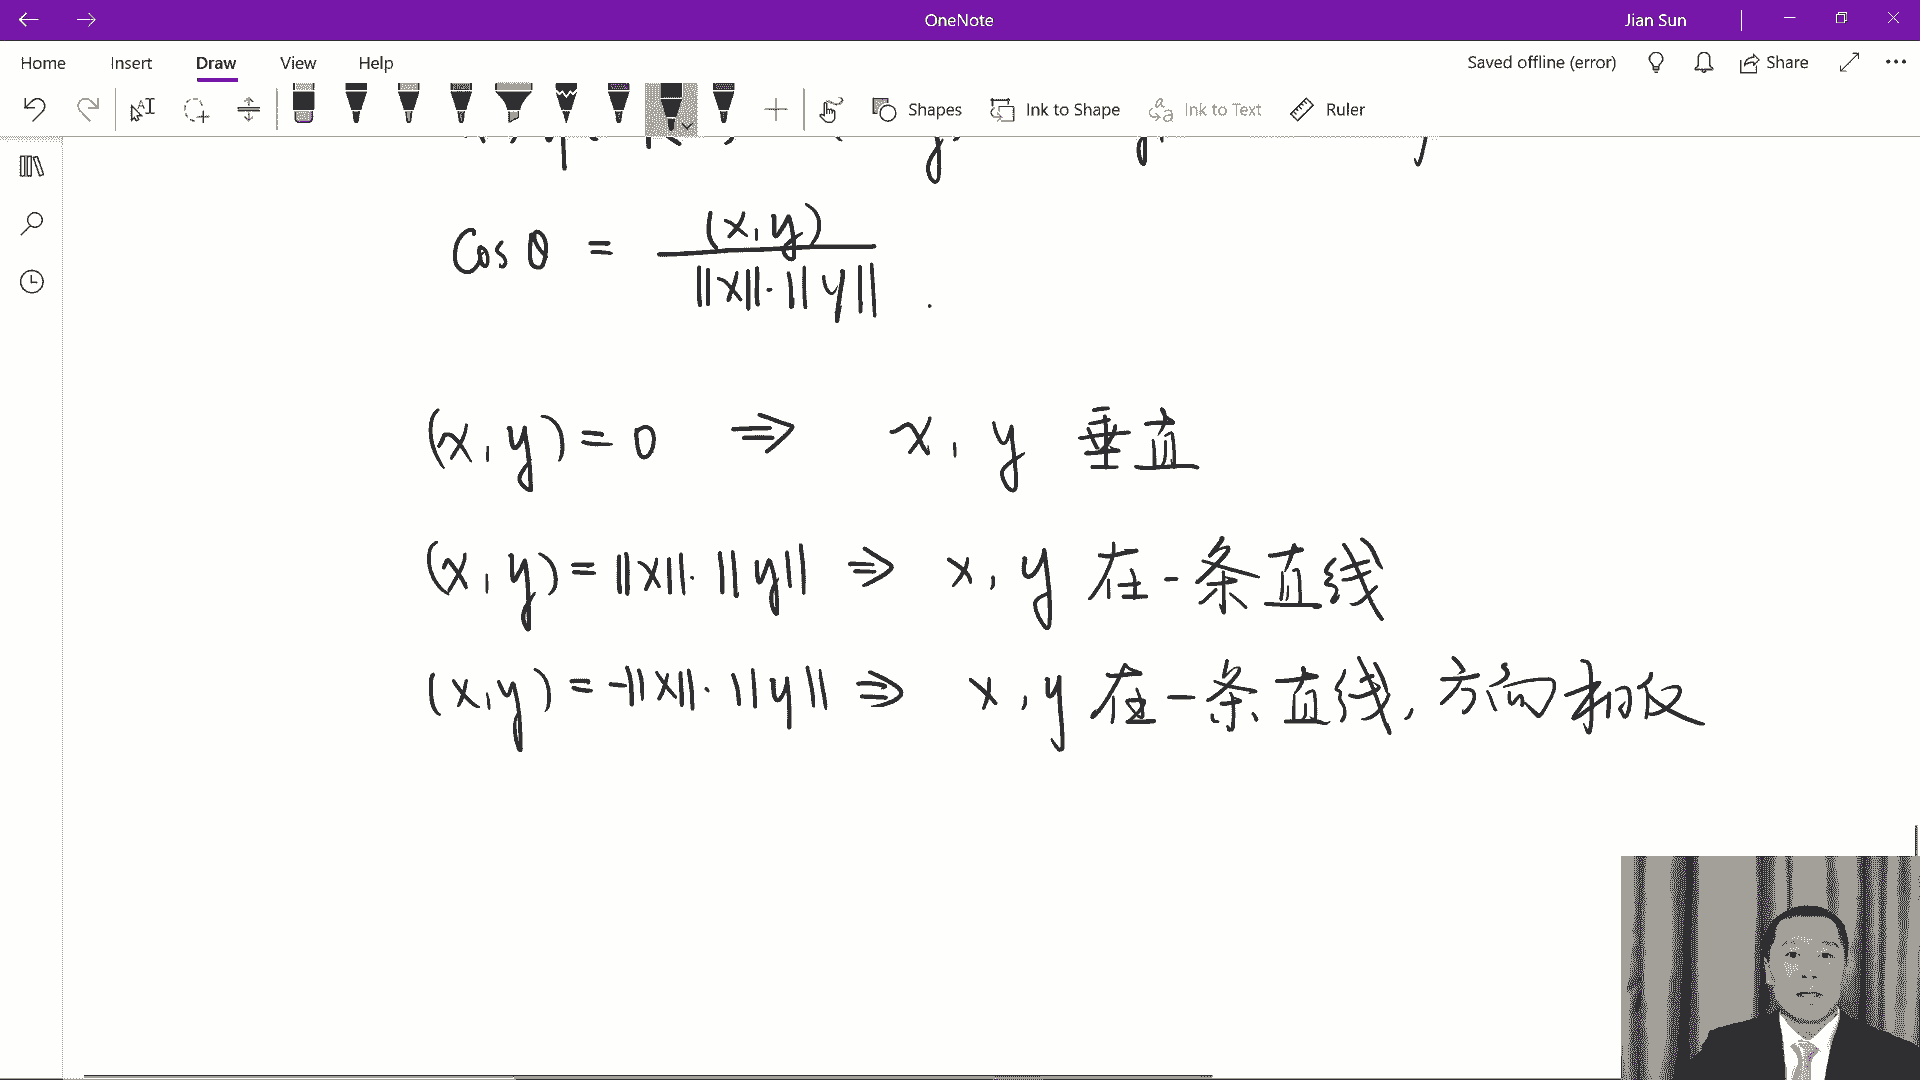 OneNote
Jian Sun
Home Insert Draw View Help
Saved offline (error) Share
Shapes Ink to Shape Ink to Text Ruler
Cos θ = (x, y) / ||x||·||y|| .
(x, y) = 0 ⇒ x, y 垂直
(x, y) = ||x||·||y|| ⇒ x, y 在一条直线
(x, y) = -||x||·||y|| ⇒ x, y 在一条直线, 方向相反